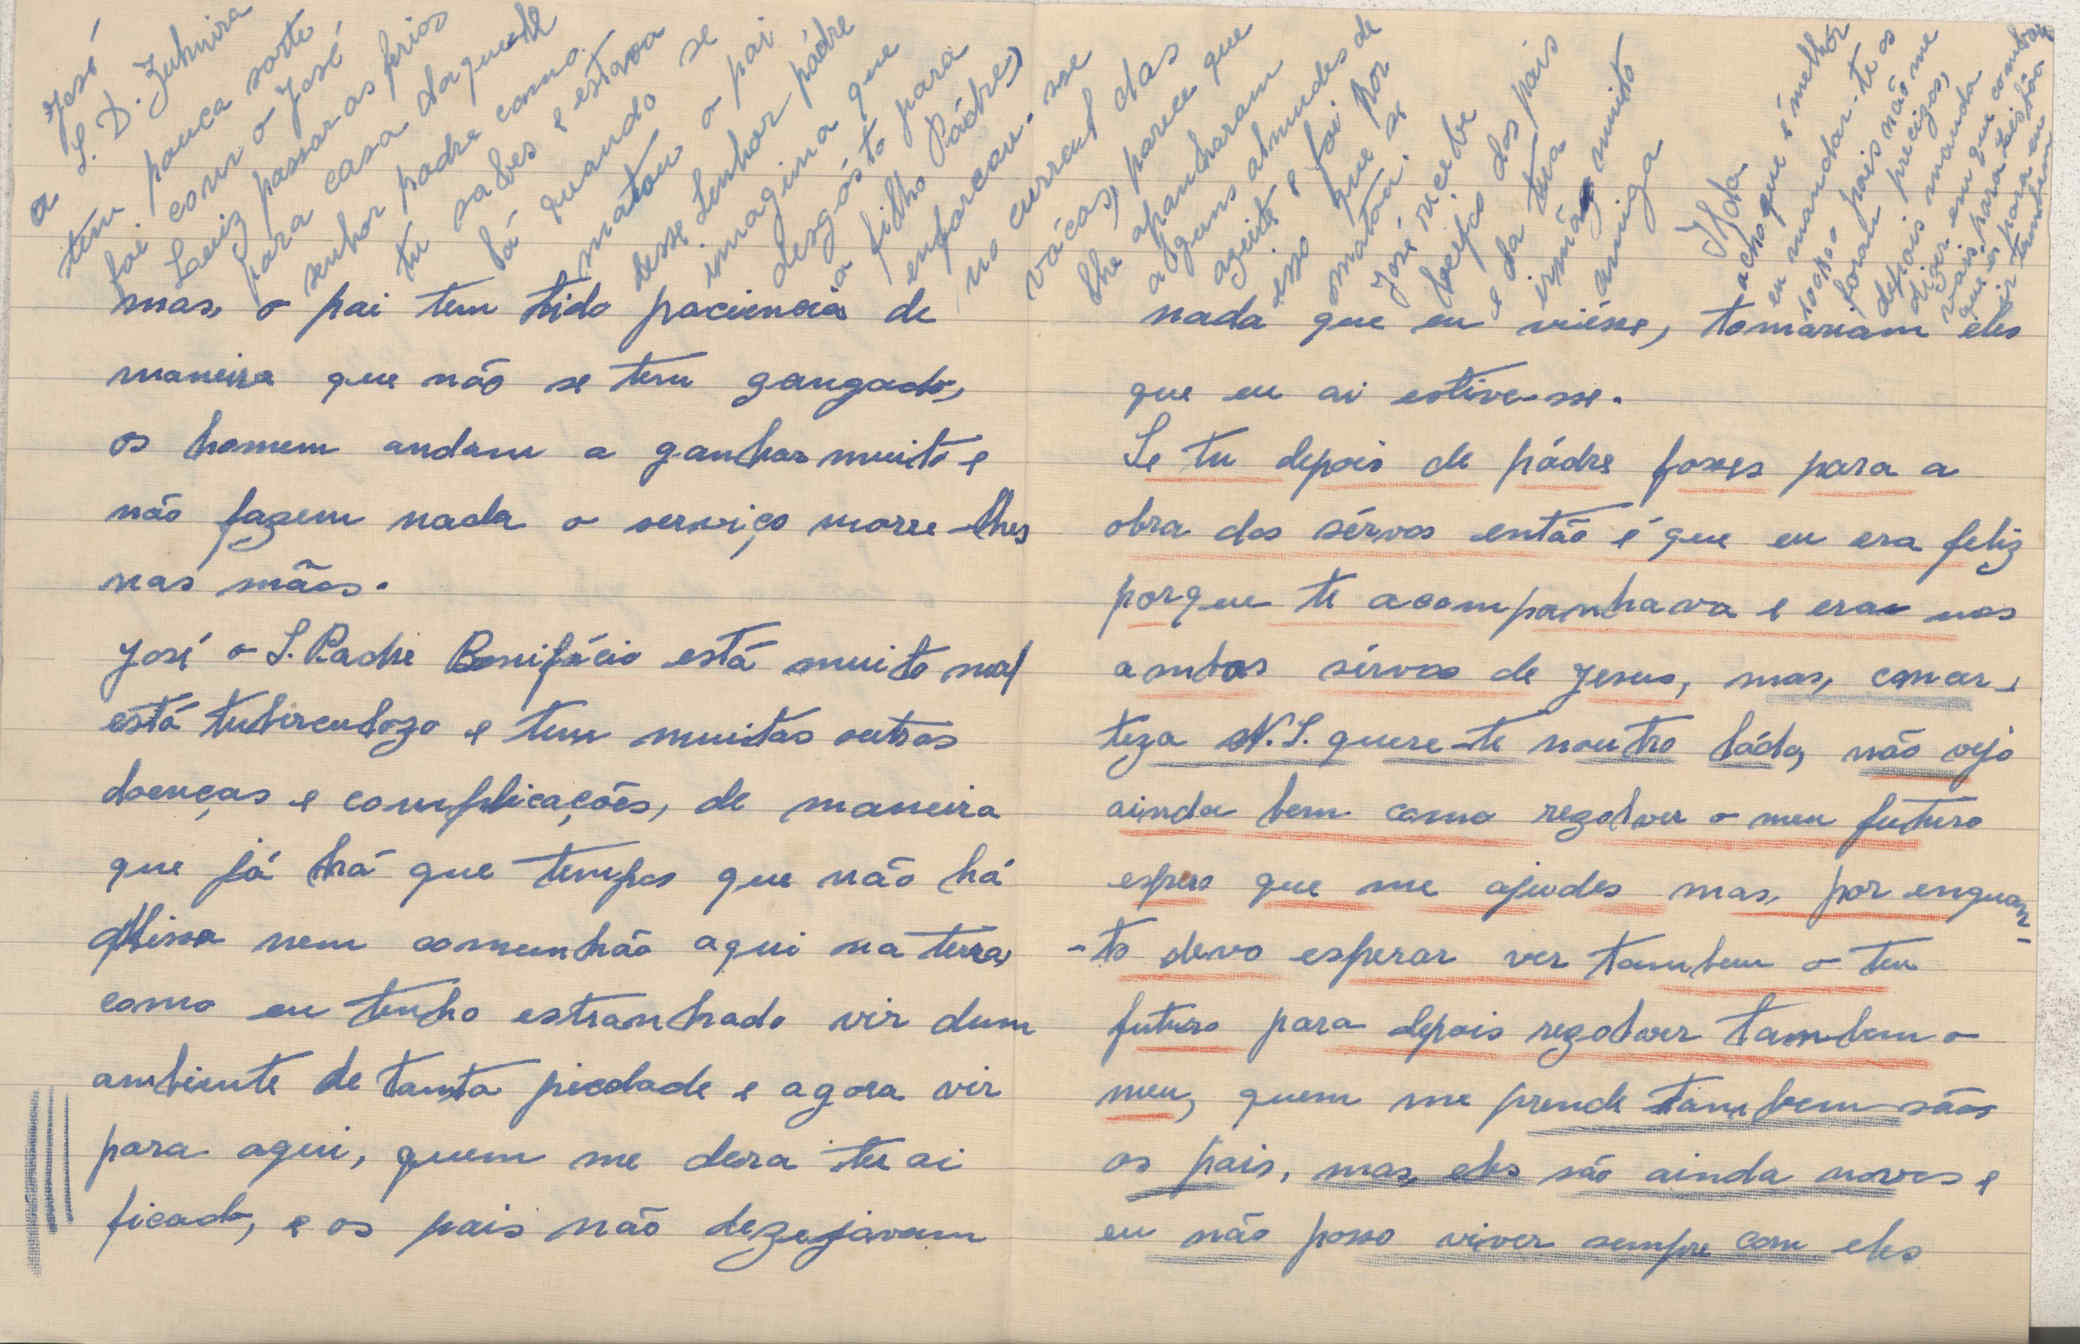 mas, o pai tem tido paciencia de
maneira que não se tem gangado,
os homem andam a ganhar muito e
não fazem nada o serviço morre-lhes
nas mãos.
José o S. Padre Bonifácio está muito mal
está tubirculozo e tem muitas outras
doenças e complicações, de maneira
que já há que tempos que não há
Missa nem comunhão aqui na terra,
como eu tenho estranhado vir dum
ambiente de tanta piedade e agora vir
para aqui, quem me dera ter ai
ficado, e os pais não dezejavam
nada que eu viésse, tomariam eles
que eu ai estive-sse.
Se tu depois de pádre foxes para a
obra dos sérvos então é que eu era feliz
porque te acompanhava e era nos
ambos sérvos de Jesus, mas, concar-
teza N.S. quere-te noutro ládo, não vejo
ainda bem como rezolver o meu futuro
espero que me ajudes mas, por enquan-
-to devo esperar ver tambem o teu
futuro para depois rezolver tambem o
meu, quem me prende tambem são os
os pais, mas, eles são ainda novos e
eu não posso viver sempre com eles
José
a S. D. Zulmira
tem pouca sorte
foi com o José
Luiz passar as frios
para casa daquele
senhor padre como
tu sabes e estava
lá quando se
matou o pai
desse Senhor pádre
imagina que
desgósto para
o filho Pádre,
enforcou-sse
no curral das
vácas, parece que
lhe apanharam
alguns almudes de
azeite e foi por
isso que se
matou.
José recebe
beijos dos pais
e da tua
irmã muito
amiga
Nota
acho que é melhór
eu mandar-te os
pais não me
foram precizos,
depois manda
dizer em que comboio
vais para Leistão
que é para eu
ir tambem